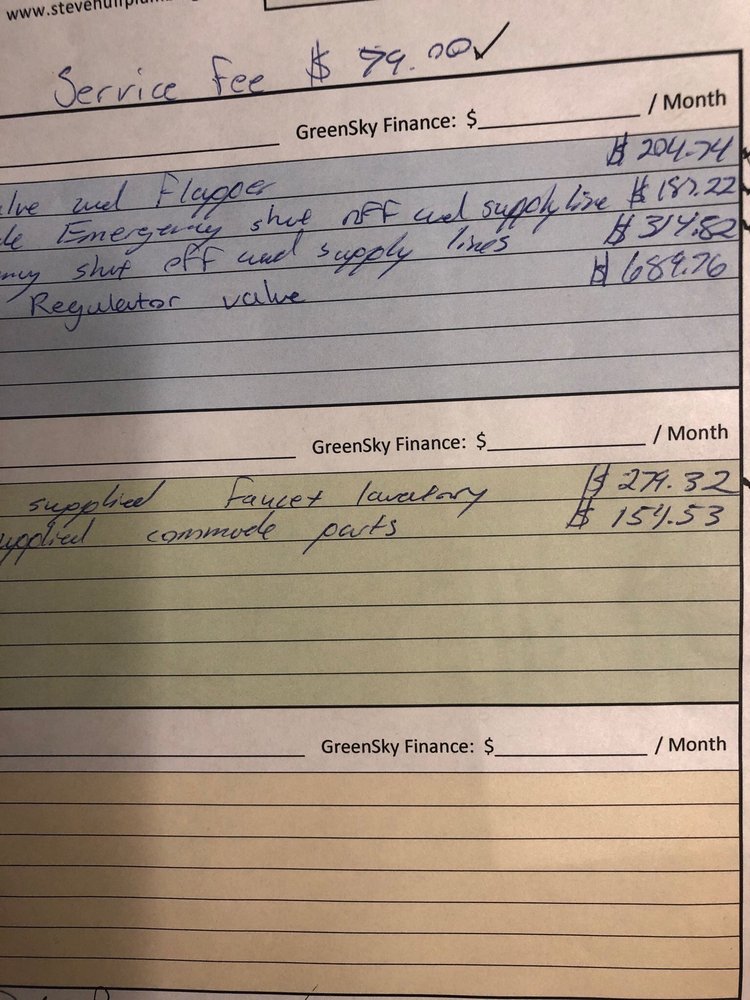 Service Fee $ 79.00✓
GreenSky Finance: $ / Month
and Flapper $ 204.74
Emergency shut off and supply line $ 187.22
shut off and supply lines $ 314.82
Regulator valve $ 689.76
GreenSky Finance: $ / Month
supplied Faucet lavatory $ 279.32
commode parts $ 154.53
GreenSky Finance: $ / Month